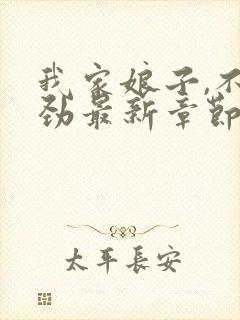 我家娘子,不
劲最新章節
太平長安